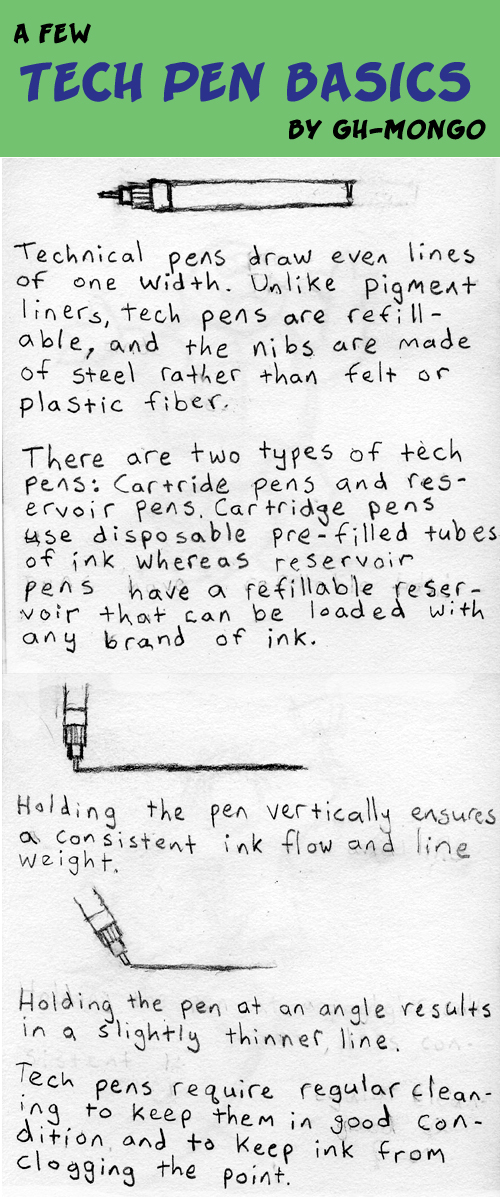 A FEW
TECH PEN BASICS
BY GH-MONGO
Technical pens draw even lines
of one width. Unlike pigment
liners, tech pens are refill-
able, and the nibs are made
of steel rather than felt or
plastic fiber.
There are two types of tech
pens: Cartride pens and res-
ervoir pens. Cartridge pens
use disposable pre-filled tubes
of ink whereas reservoir
pens have a refillable reser-
voir that can be loaded with
any brand of ink.
Holding the pen vertically ensures
a consistent ink flow and line
weight.
Holding the pen at an angle results
in a slightly thinner line.
Tech pens require regular clean-
ing to keep them in good con-
dition and to keep ink from
clogging the point.